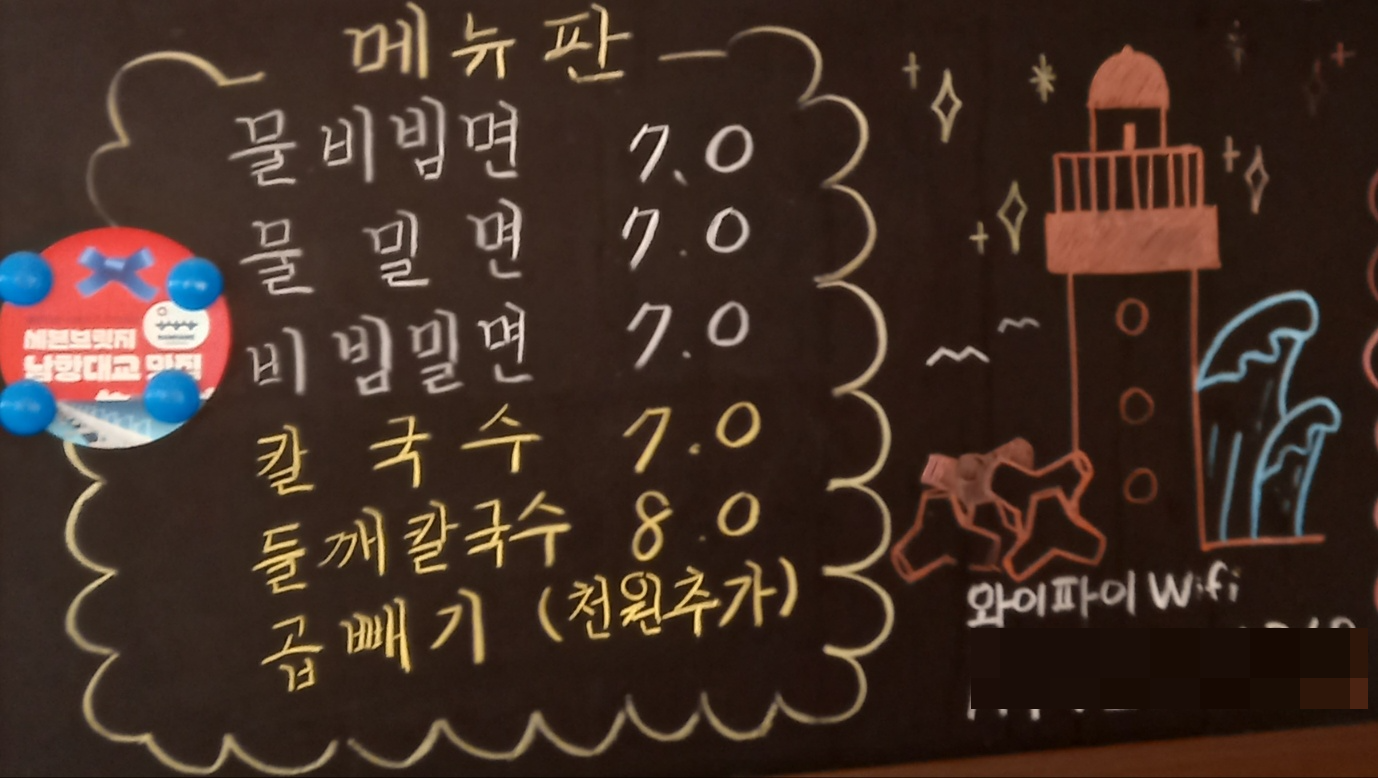 메뉴판
물비빔면 7.0
물밀면 7.0
비빔밀면 7.0
칼국수 7.0
들깨칼국수 8.0
곱빼기 (천원추가)
세븐브릿지
남항대교 맛집
와이파이 Wifi